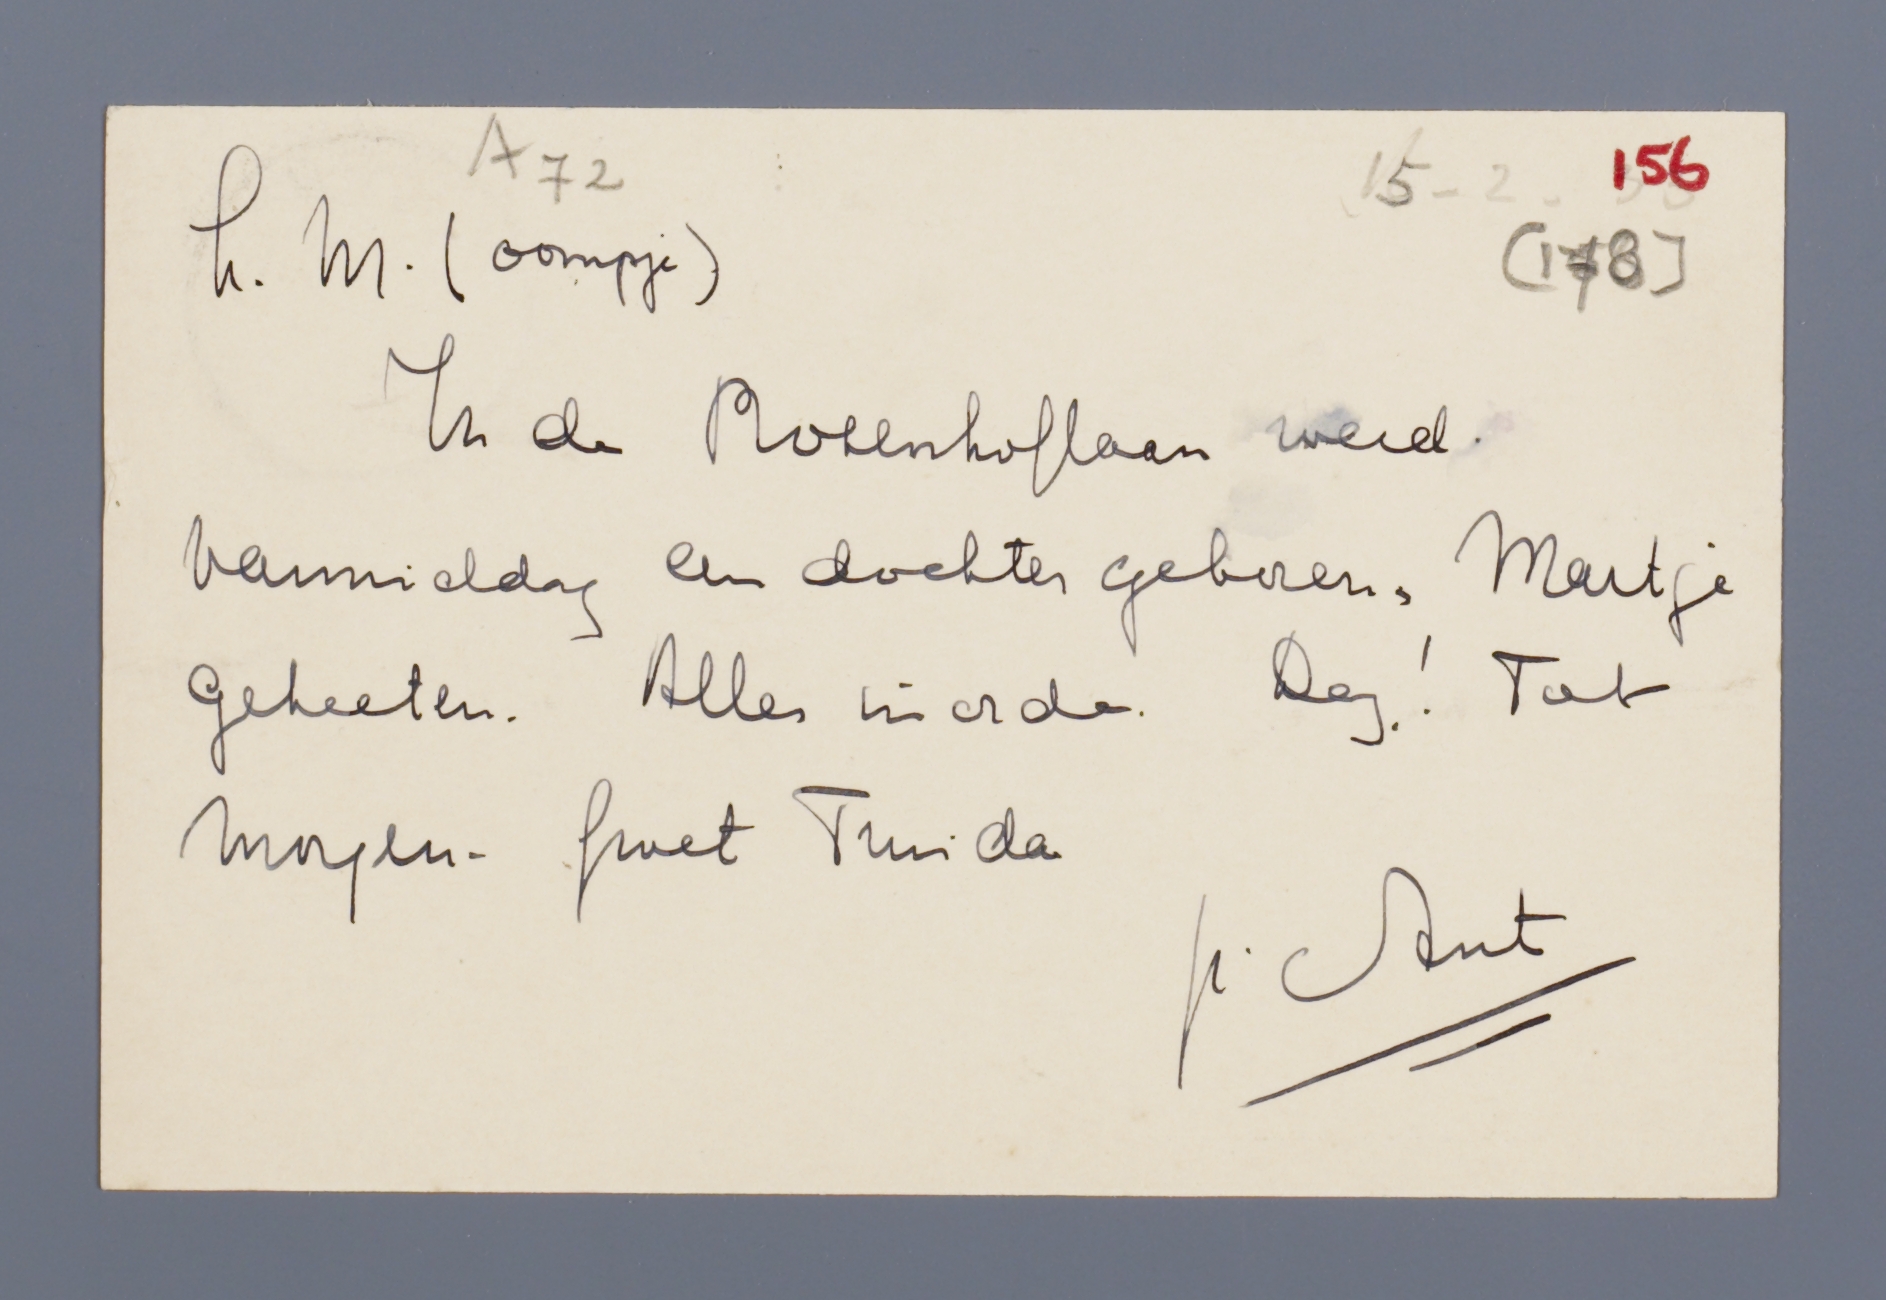 A72
15-2.
156
[178]
L. M. (oompje)
In de Rozenhoflaan werd
vanmiddag een dochter geboren, Martje
geheeten. Alles in orde. Dag! Tot
morgen. Groet Truida
je Ant